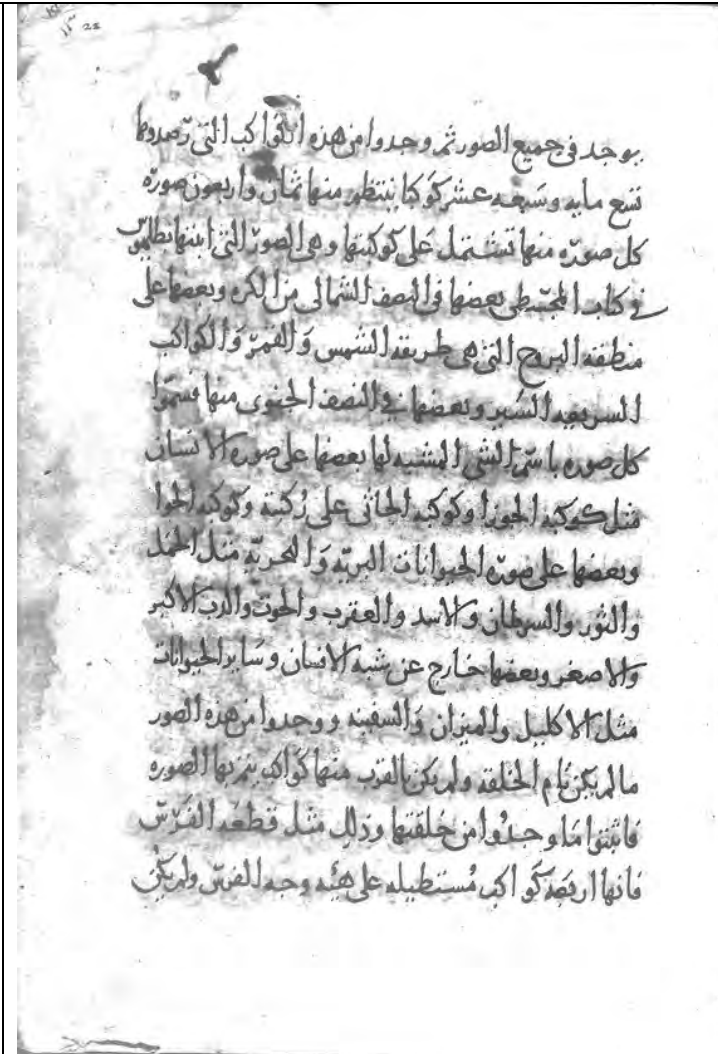 يوجد في جميع الصور ثم وجدوا من هذه الكواكب التي رصدوها
تسع مايه وسبعه عشر كوكبا ينتظم منها ثمان واربعون صوره
كل صوره منها تشتمل على كوكبتها وهي الصور التي اثبتها بطلميوس
في كتاب المجسطي بعضها في النصف الشمالي من الكره وبعضها على
منطقه البروج التي هي طريقه الشمس والقمر والكواكب
السريعه السير وبعضها في النصف الجنوبي منها فسموا
كل صوره باسم الشي المشبه لها بعضها على صوره الانسان
مثل كوكبه الجوزا وكوكبه الجاثي على ركبته وكوكبه الحوا
وبعضها على صوره الحيوانات البريه والبحريه مثل الحمل
والثور والسرطان والاسد والعقرب والحوت والدب الاكبر
والاصغر وبعضها خارج عن شبه الانسان وساير الحيوانات
مثل الاكليل والميزان والسفينه ووجدوا من هذه الصور
مالم يكن تام الخلقه ولم يكن بالقرب منها كواكب يتم بها الصوره
فاثبتوا ما وجدوا من خلقتها وذلك مثل قطعه الفرس
فانها اربعه كواكب مستطيله على هيئه وجه الفرس ولم يكن